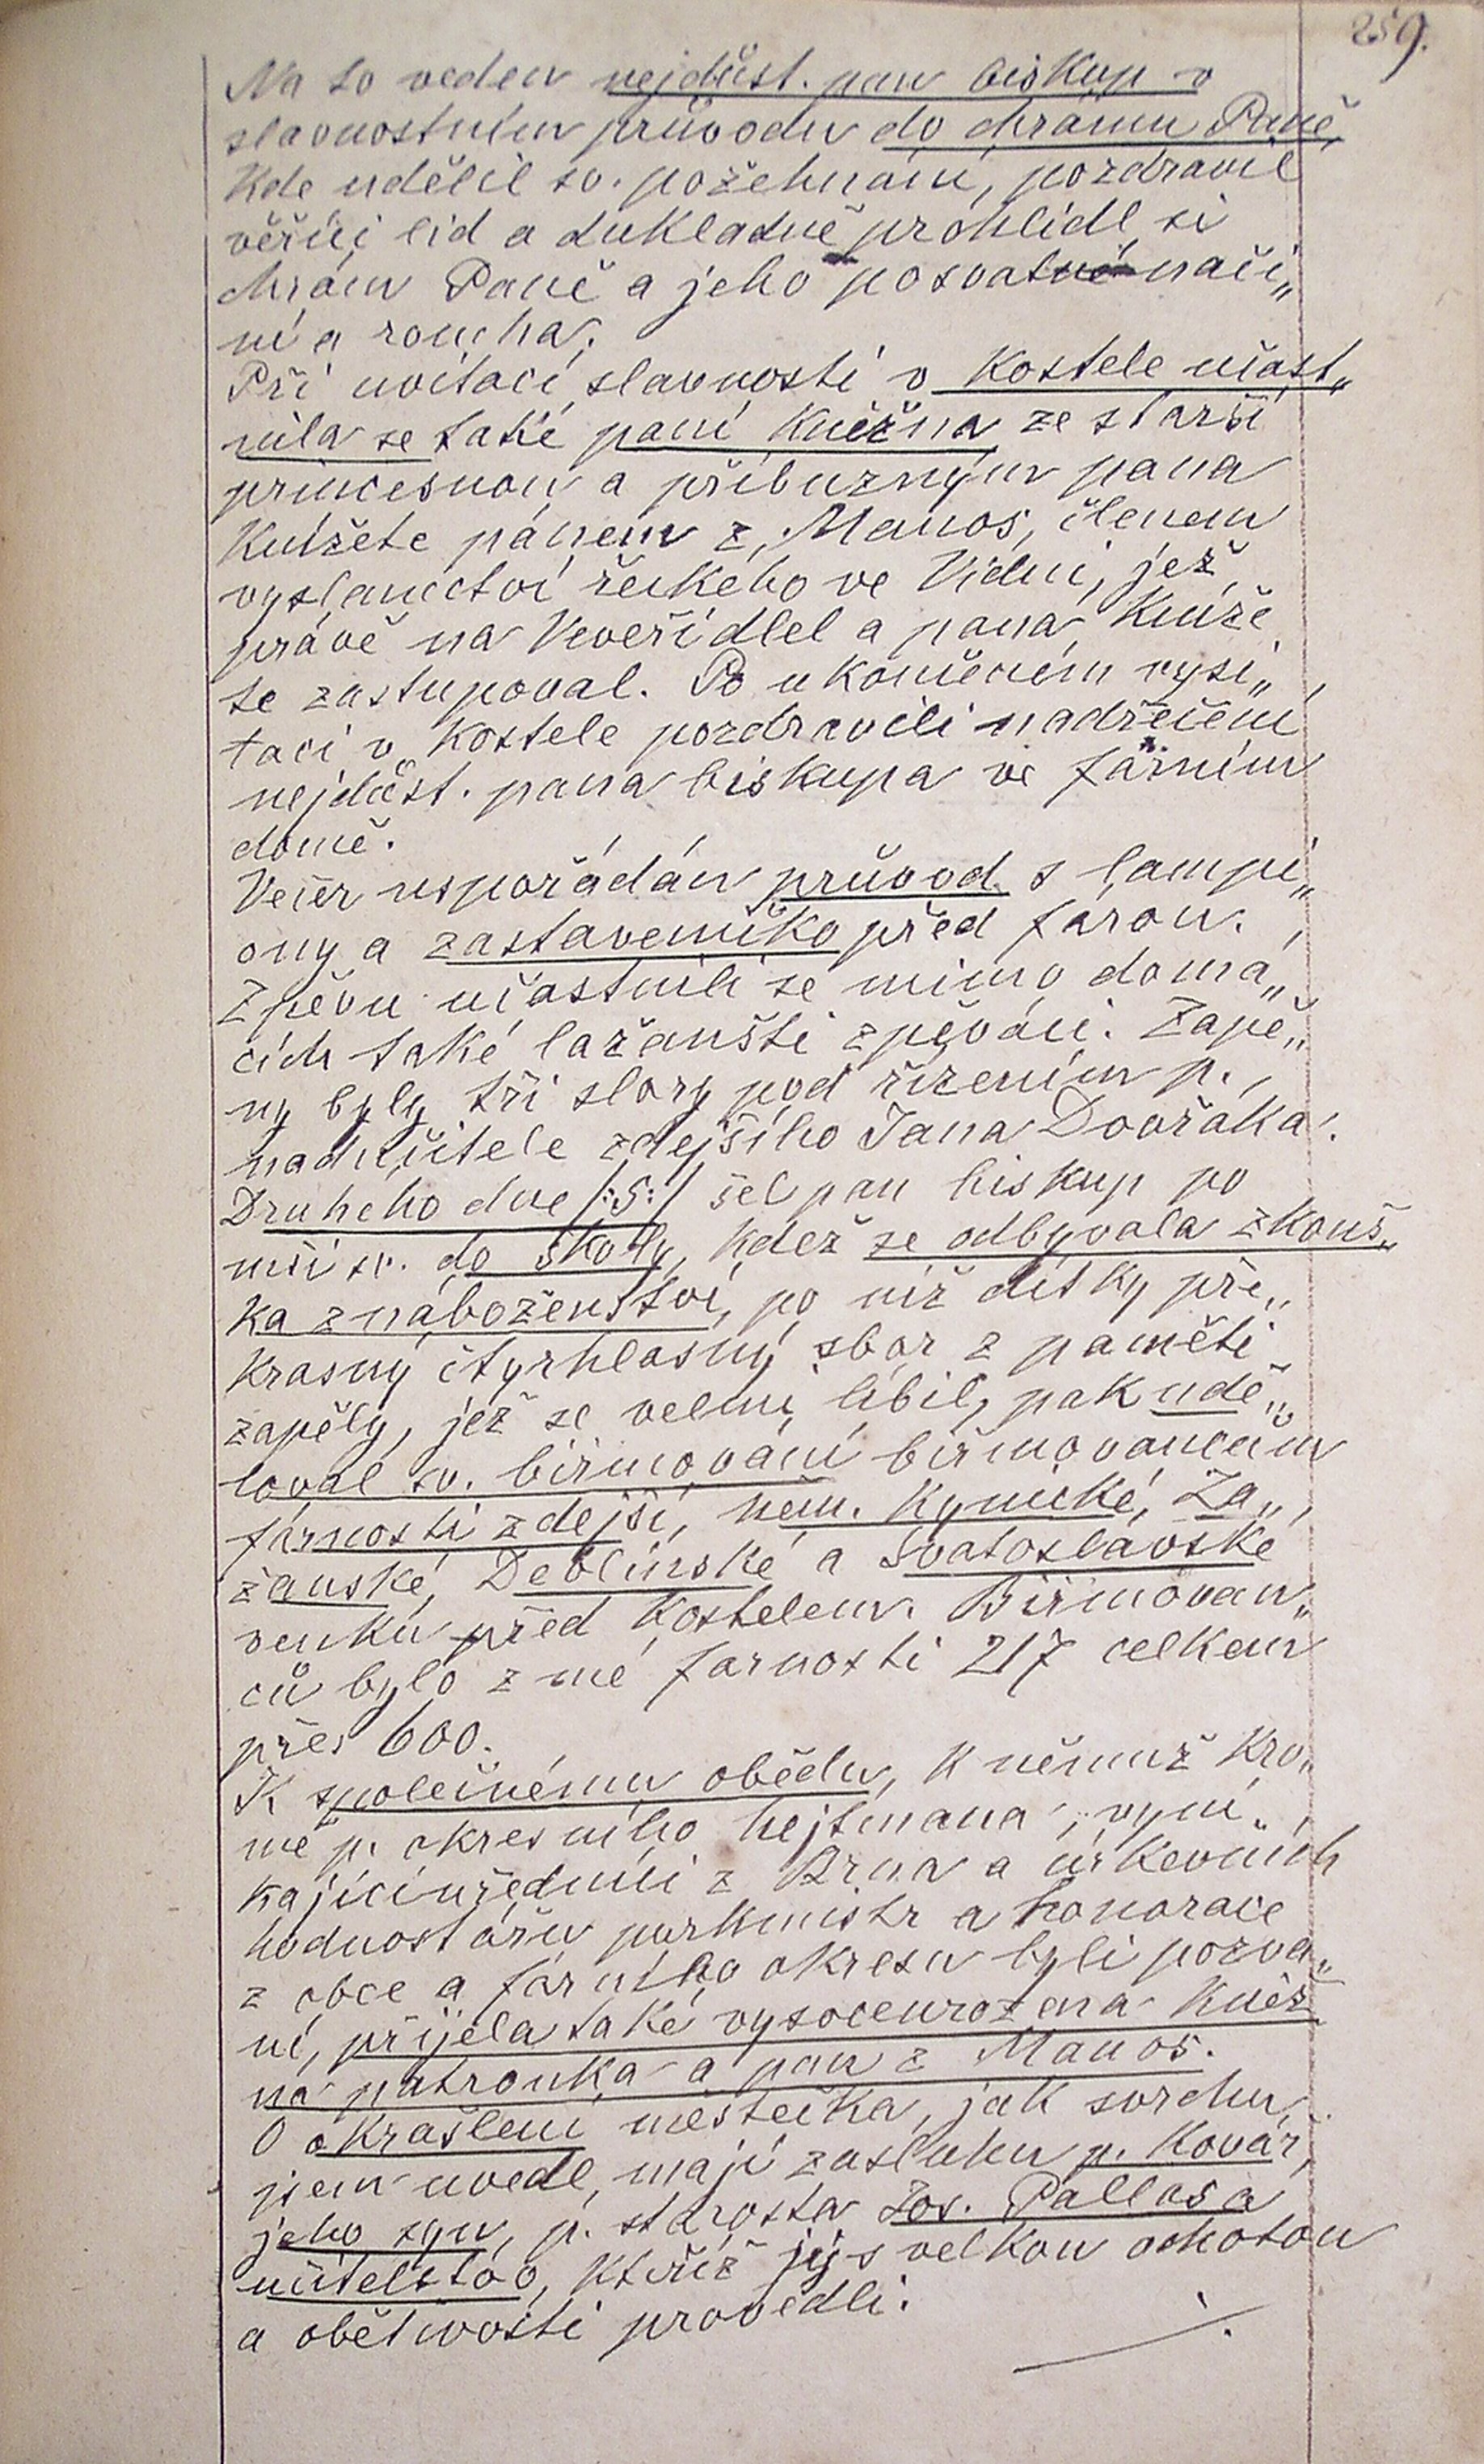 259.
Na to veden nejdůst. pan biskup v
slavnostním průvodu do chrámu Páně,
kde udělil sv. požehnání, pozdravil
věřící lid a dukladně prohlídl si
chrám Páně a jeho posvatné nači„
ní a roucha.
Při uvítací slavnosti v kostele účast„
nila se také paní kněžna ze starší
princesnou a příbuzným pana
knížete pánem z Manos, členem
vyslanectví řeckého ve Vídni, jež
právě na Veveří dlel a pana kníže
te zastupoval. Po ukončením vysi„
taci v kostele pozdravili nadřečení
nejdůst. pana biskupa ve fárním
domě.
Večer uspořádán průvod s lampi„
ony a zastaveníčko před farou.
Zpěvu učastnili se mimo domá„
cích také lažanští zpěváci. Zapě„
ny byly tři sbory pod řízením p.
nadučitele zdejšího Jana Dvořáka.
Druhého dne /:5:/ šel pan biskup po
mši sv. do školy, kdež se odbyvala zkouš„
ka z náboženství, po níž dítky pře„
krasný čtyrhlasný sbor z paměti
zapěly, jež se velmi líbil, pak udě„
loval sv. biřmování biřmovancům
fárnosti zdejší, něm. Kynické, La„
žanské, Deblínské a Svatoslavské
venku před kostelem. Biřmovan„
ců bylo z mé farnosti 217 celkem
přes 600.
K společnému obědu, k němuž kro„
mě p. okresního hejtmana, vyni„
kající uředníci z Brna a církevních
hodnostářu purkmistr a honorace
z obce a fárního okresu byli pozvá„
ni, přijela také vysocenrozena kněž
na patronka a pan z Manos.
O okrašlení městečka, jak svrchu
jsem uvedl, mají zasluhu p. Kovář,
jeho syn, p. starosta Jos. Pallas a
učitelstvo, kteříž jej s velkou ochotou
a obětivostí provedli.